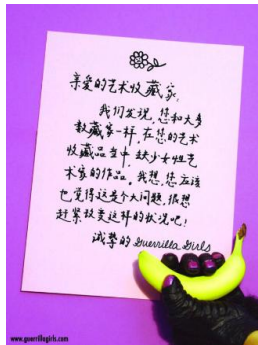 亲爱的艺术收藏家，
我们发现，您和大多
数藏家一样，在您的艺术
收藏品当中，缺少女性艺
术家的作品。我想，您应该
也觉得这是个大问题，很想
赶紧改变这样的状况吧！
诚挚的 Guerrilla Girls
www.guerrillagirls.com